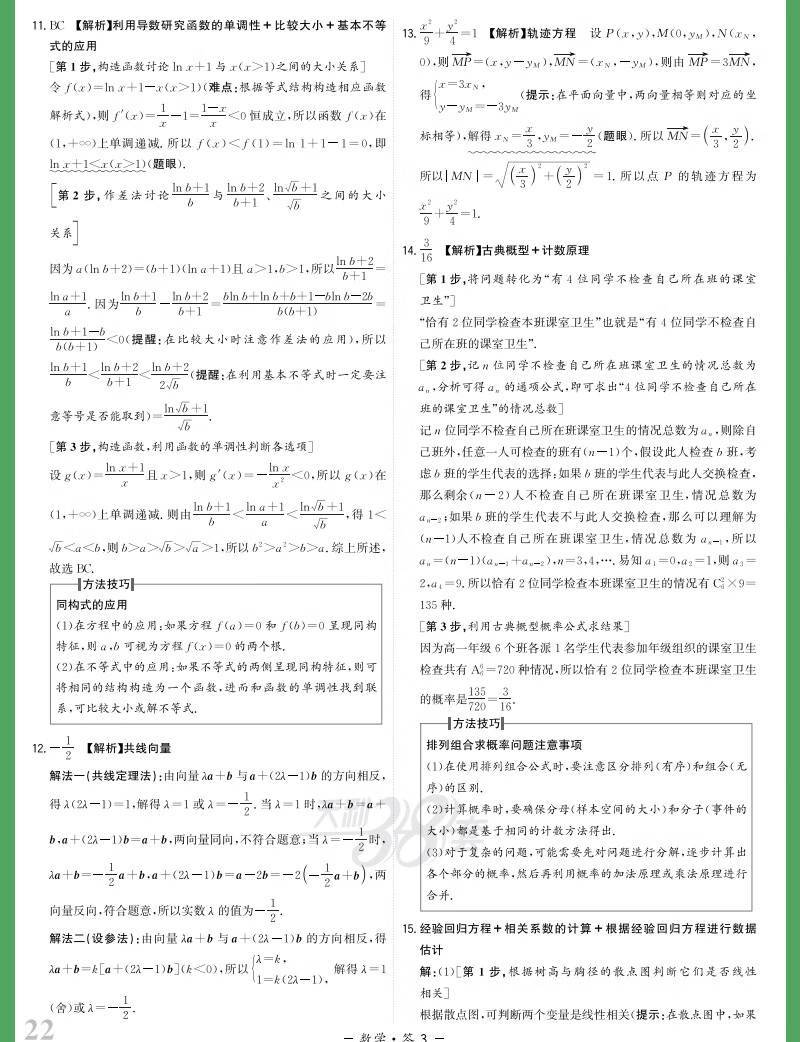 11. BC 【解析】利用导数研究函数的单调性+比较大小+基本不等
式的应用
[第1步,构造函数讨论 ln x+1 与 x(x>1)之间的大小关系]
令 f(x)=ln x+1-x(x>1)(难点:根据等式结构构造相应函数
解析式),则 f′(x)=1/x-1=(1-x)/x<0 恒成立,所以函数 f(x)在
(1,+∞)上单调递减. 所以 f(x)<f(1)=ln 1+1-1=0,即
ln x+1<x(x>1)(题眼).
[第2步,作差法讨论 (ln b+1)/b 与 (ln b+2)/(b+1)、(ln√b+1)/√b 之间的大小
关系]
因为 a(ln b+2)=(b+1)(ln a+1)且 a>1,b>1,所以 (ln b+2)/(b+1)=
(ln a+1)/a. 因为 (ln b+1)/b-(ln b+2)/(b+1)=(bln b+ln b+b+1-bln b-2b)/(b(b+1))=
(ln b+1-b)/(b(b+1))<0(提醒:在比较大小时注意作差法的应用),所以
(ln b+1)/b<(ln b+2)/(b+1)<(ln b+2)/(2√b)(提醒:在利用基本不等式时一定要注
意等号是否能取到)=(ln√b+1)/√b.
[第3步,构造函数,利用函数的单调性判断各选项]
设 g(x)=(ln x+1)/x 且 x>1,则 g′(x)=-ln x/x²<0,所以 g(x)在
(1,+∞)上单调递减. 则由 (ln b+1)/b<(ln a+1)/a<(ln√b+1)/√b,得 1<
√b<a<b,则 b>a>√b>√a>1,所以 b²>a²>b>a. 综上所述,
故选 BC.
方法技巧
同构式的应用
(1)在方程中的应用:如果方程 f(a)=0 和 f(b)=0 呈现同构
特征,则 a,b 可视为方程 f(x)=0 的两个根.
(2)在不等式中的应用:如果不等式的两侧呈现同构特征,则可
将相同的结构构造为一个函数,进而和函数的单调性找到联
系,可比较大小或解不等式.
12. -1/2 【解析】共线向量
解法一(共线定理法):由向量 λa+b 与 a+(2λ-1)b 的方向相反,
得 λ(2λ-1)=1,解得 λ=1 或 λ=-1/2. 当 λ=1 时,λa+b=a+
b,a+(2λ-1)b=a+b,两向量同向,不符合题意;当 λ=-1/2 时,
λa+b=-1/2 a+b,a+(2λ-1)b=a-2b=-2(-1/2 a+b),两
向量反向,符合题意,所以实数 λ 的值为-1/2.
解法二(设参法):由向量 λa+b 与 a+(2λ-1)b 的方向相反,得
λa+b=k[a+(2λ-1)b](k<0),所以 {λ=k, 1=k(2λ-1), 解得 λ=1
(舍)或 λ=-1/2.
13. x²/9+y²/4=1 【解析】轨迹方程 设 P(x,y),M(0,y_M),N(x_N,
0),则 →MP=(x,y-y_M),→MN=(x_N,-y_M),则由 →MP=3→MN,
得 {x=3x_N, y-y_M=-3y_M (提示:在平面向量中,两向量相等则对应的坐
标相等),解得 x_N=x/3,y_M=-y/2(题眼). 所以 →MN=(x/3,y/2).
所以|MN|=√((x/3)²+(y/2)²)=1. 所以点 P 的轨迹方程为
x²/9+y²/4=1.
14. 3/16 【解析】古典概型+计数原理
[第1步,将问题转化为“有4位同学不检查自己所在班的课室
卫生”]
“恰有2位同学检查本班课室卫生”也就是“有4位同学不检查自
己所在班的课室卫生”.
[第2步,记 n 位同学不检查自己所在班课室卫生的情况总数为
aₙ,分析可得 aₙ 的通项公式,即可求出“4位同学不检查自己所在
班的课室卫生”的情况总数]
记 n 位同学不检查自己所在班课室卫生的情况总数为 aₙ,则除自
己班外,任意一人可检查的班有(n-1)个,假设此人检查 b 班,考
虑 b 班的学生代表的选择:如果 b 班的学生代表与此人交换检查,
那么剩余(n-2)人不检查自己所在班课室卫生,情况总数为
aₙ₋₂;如果 b 班的学生代表不与此人交换检查,那么可以理解为
(n-1)人不检查自己所在班课室卫生,情况总数为 aₙ₋₁,所以
aₙ=(n-1)(aₙ₋₁+aₙ₋₂),n=3,4,…. 易知 a₁=0,a₂=1,则 a₃=
2,a₄=9. 所以恰有2位同学检查本班课室卫生的情况有 C₆²×9=
135 种.
[第3步,利用古典概型概率公式求结果]
因为高一年级6个班各派1名学生代表参加年级组织的课室卫生
检查共有 A₆⁶=720 种情况,所以恰有2位同学检查本班课室卫生
的概率是 135/720=3/16.
方法技巧
排列组合求概率问题注意事项
(1)在使用排列组合公式时,要注意区分排列(有序)和组合(无
序)的区别.
(2)计算概率时,要确保分母(样本空间的大小)和分子(事件的
大小)都是基于相同的计数方法得出.
(3)对于复杂的问题,可能需要先对问题进行分解,逐步计算出
各个部分的概率,然后再利用概率的加法原理或乘法原理进行
合并.
15. 经验回归方程+相关系数的计算+根据经验回归方程进行数据
估计
解:(1)[第1步,根据树高与胸径的散点图判断它们是否线性
相关]
根据散点图,可判断两个变量是线性相关(提示:在散点图中,如果
22
— 数学·答 3 —